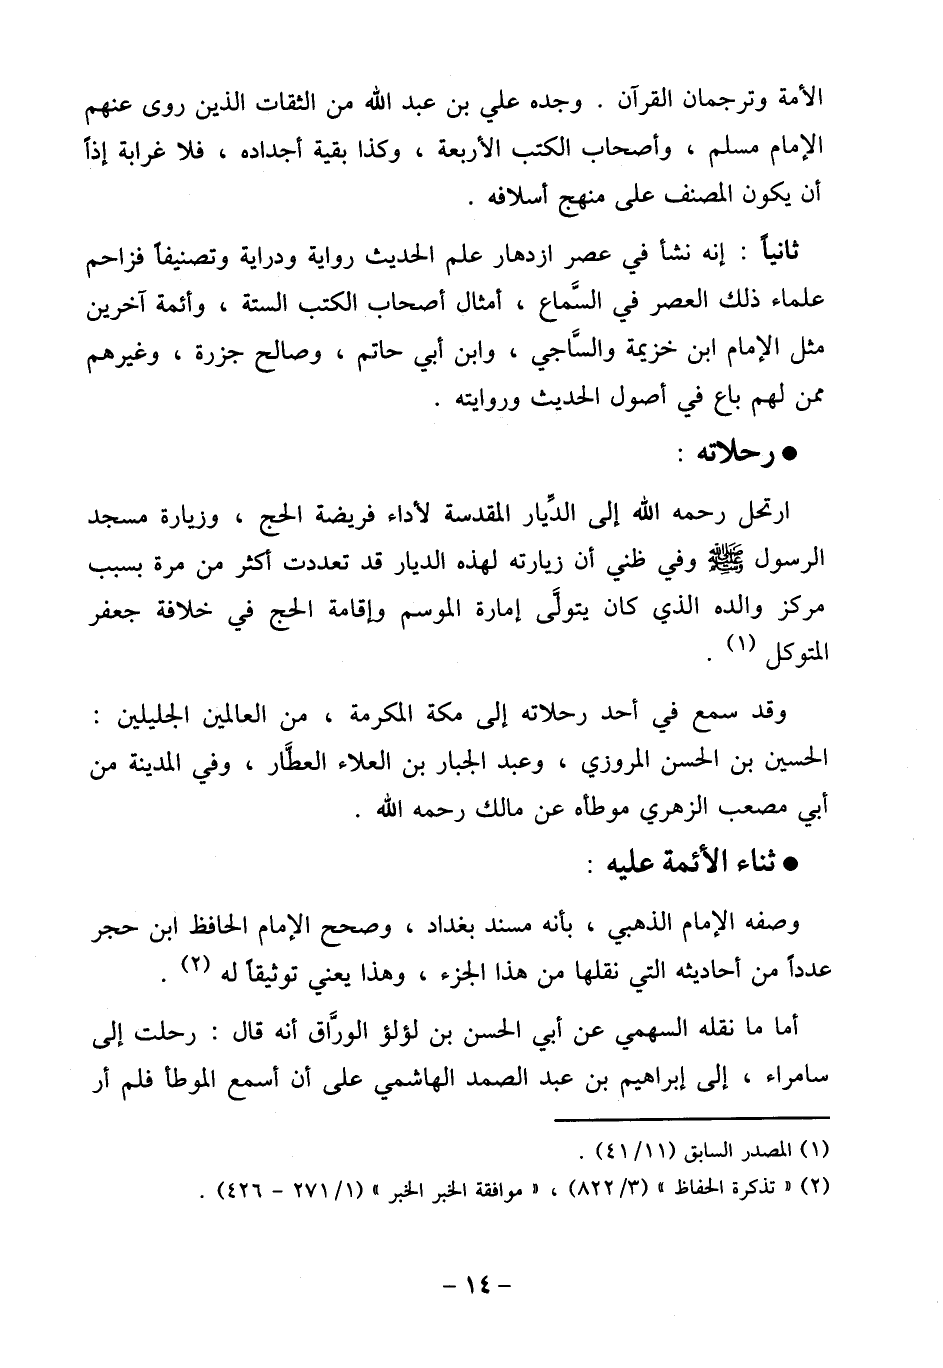 الأمة وترجمان القرآن . وجده علي بن عبد الله من الثقات الذين روى عنهم
الإمام مسلم ، وأصحاب الكتب الأربعة ، وكذا بقية أجداده ، فلا غرابة إذاً
أن يكون المصنف على منهج أسلافه .
ثانياً : إنه نشأ في عصر ازدهار علم الحديث رواية ودراية وتصنيفاً فزاحم
علماء ذلك العصر في السَّماع ، أمثال أصحاب الكتب الستة ، وأئمة آخرين
مثل الإمام ابن خزيمة والسَّاجي ، وابن أبي حاتم ، وصالح جزرة ، وغيرهم
ممن لهم باع في أصول الحديث وروايته .
● رحلاته :
ارتحل رحمه الله إلى الدِّيار المقدسة لأداء فريضة الحج ، وزيارة مسجد
الرسول ﷺ وفي ظني أن زيارته لهذه الديار قد تعددت أكثر من مرة بسبب
مركز والده الذي كان يتولَّى إمارة الموسم وإقامة الحج في خلافة جعفر
المتوكل (١) .
وقد سمع في أحد رحلاته إلى مكة المكرمة ، من العالمين الجليلين :
الحسين بن الحسن المروزي ، وعبد الجبار بن العلاء العطَّار ، وفي المدينة من
أبي مصعب الزهري موطأه عن مالك رحمه الله .
● ثناء الأئمة عليه :
وصفه الإمام الذهبي ، بأنه مسند بغداد ، وصحح الإمام الحافظ ابن حجر
عدداً من أحاديثه التي نقلها من هذا الجزء ، وهذا يعني توثيقاً له (٢) .
أما ما نقله السهمي عن أبي الحسن بن لؤلؤ الورَّاق أنه قال : رحلت إلى
سامراء ، إلى إبراهيم بن عبد الصمد الهاشمي على أن أسمع الموطأ فلم أر
(١) المصدر السابق (٤١/١١) .
(٢) « تذكرة الحفاظ » (٨٢٢/٣) ، « موافقة الخبر الخبر » (٢٧١/١ – ٤٢٦) .
– ١٤ –